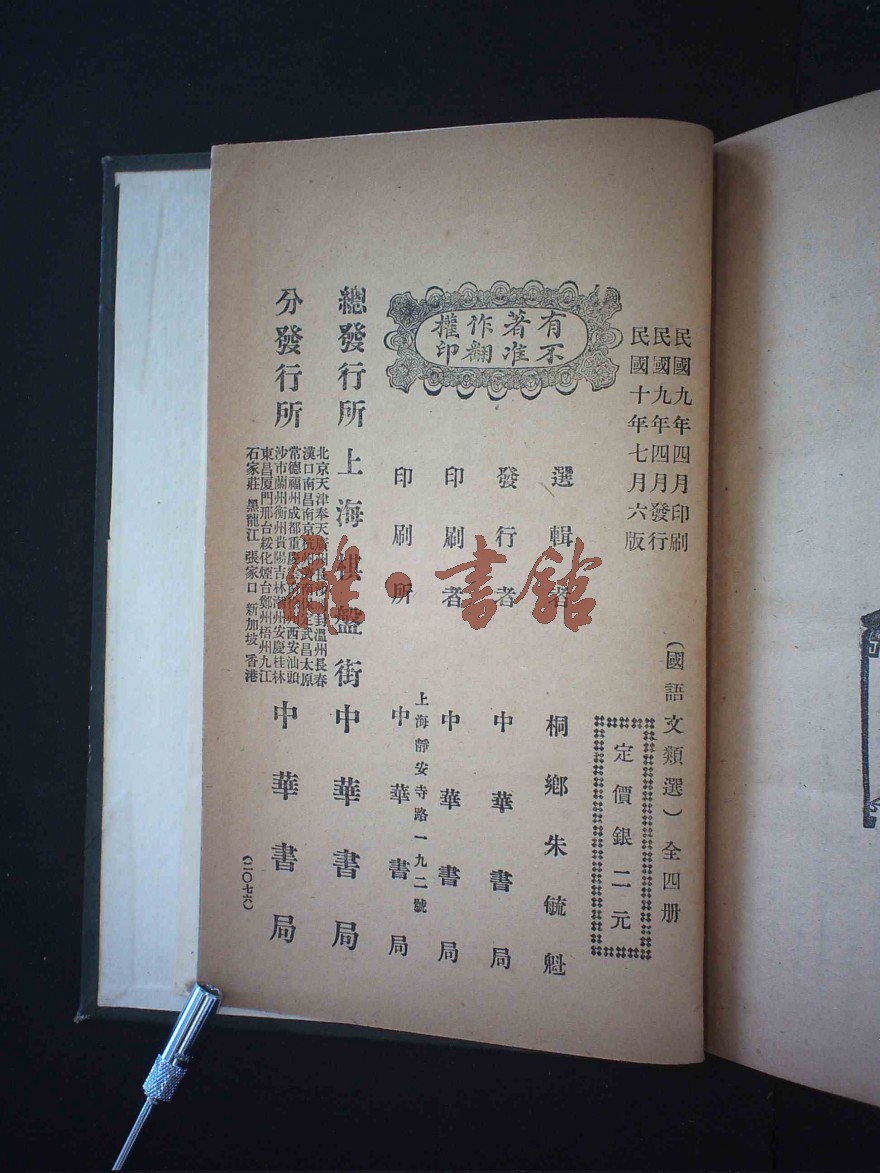 民國九年四月印刷
民國九年四月發行
民國十年七月六版
(國語文類選)全四册
定價銀二元
有著作權
不准翻印
選輯者 桐鄉朱毓魁
發行者 中華書局
印刷者 中華書局
上海靜安寺路一九二號
印刷所 中華書局
總發行所 上海棋盤街 中華書局
分發行所
北京天津奉天廣州長沙開封溫州長春
漢口南昌南京杭州濟南保定武昌太原
常德福州成都重慶 州西安汕頭
沙市蘭州衡州貴陽吉林潮州安慶桂林
東昌厦門邢台綏化煙台鄭州梧州九江
石家莊 黑龍江 張家口 新加坡 香港
中華書局
(二〇七六)
雜·書館